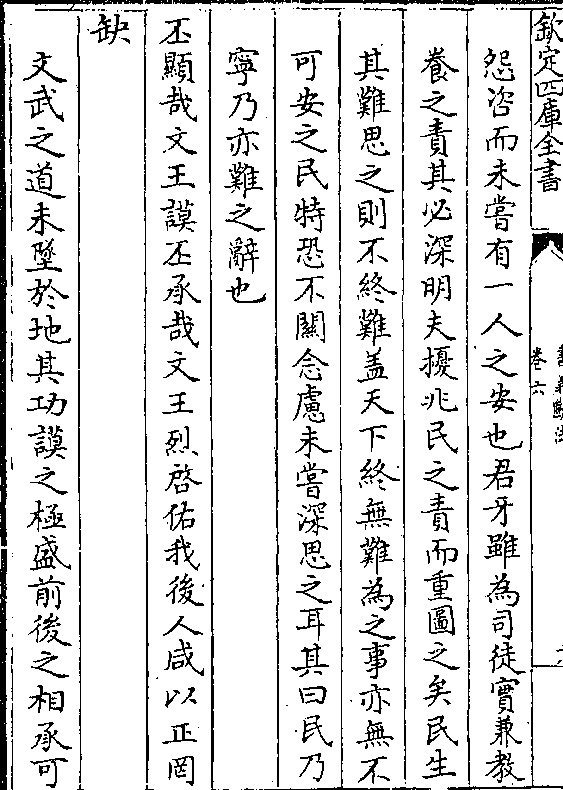 欽定四庫全書
卷六
怨咨而未嘗有一人之安也君牙雖為司徒實兼教
養之責其必深明夫擾兆民之責而重圖之矣民生
其難思之則不終難盖天下終無難為之事亦無不
可安之民特恐不關念慮未嘗深思之耳其曰民乃
寧乃亦難之辭也
丕顯哉文王謨丕承哉文王烈啓佑我後人咸以正罔
缺
文武之道未墜於地其功謨之極盛前後之相承可